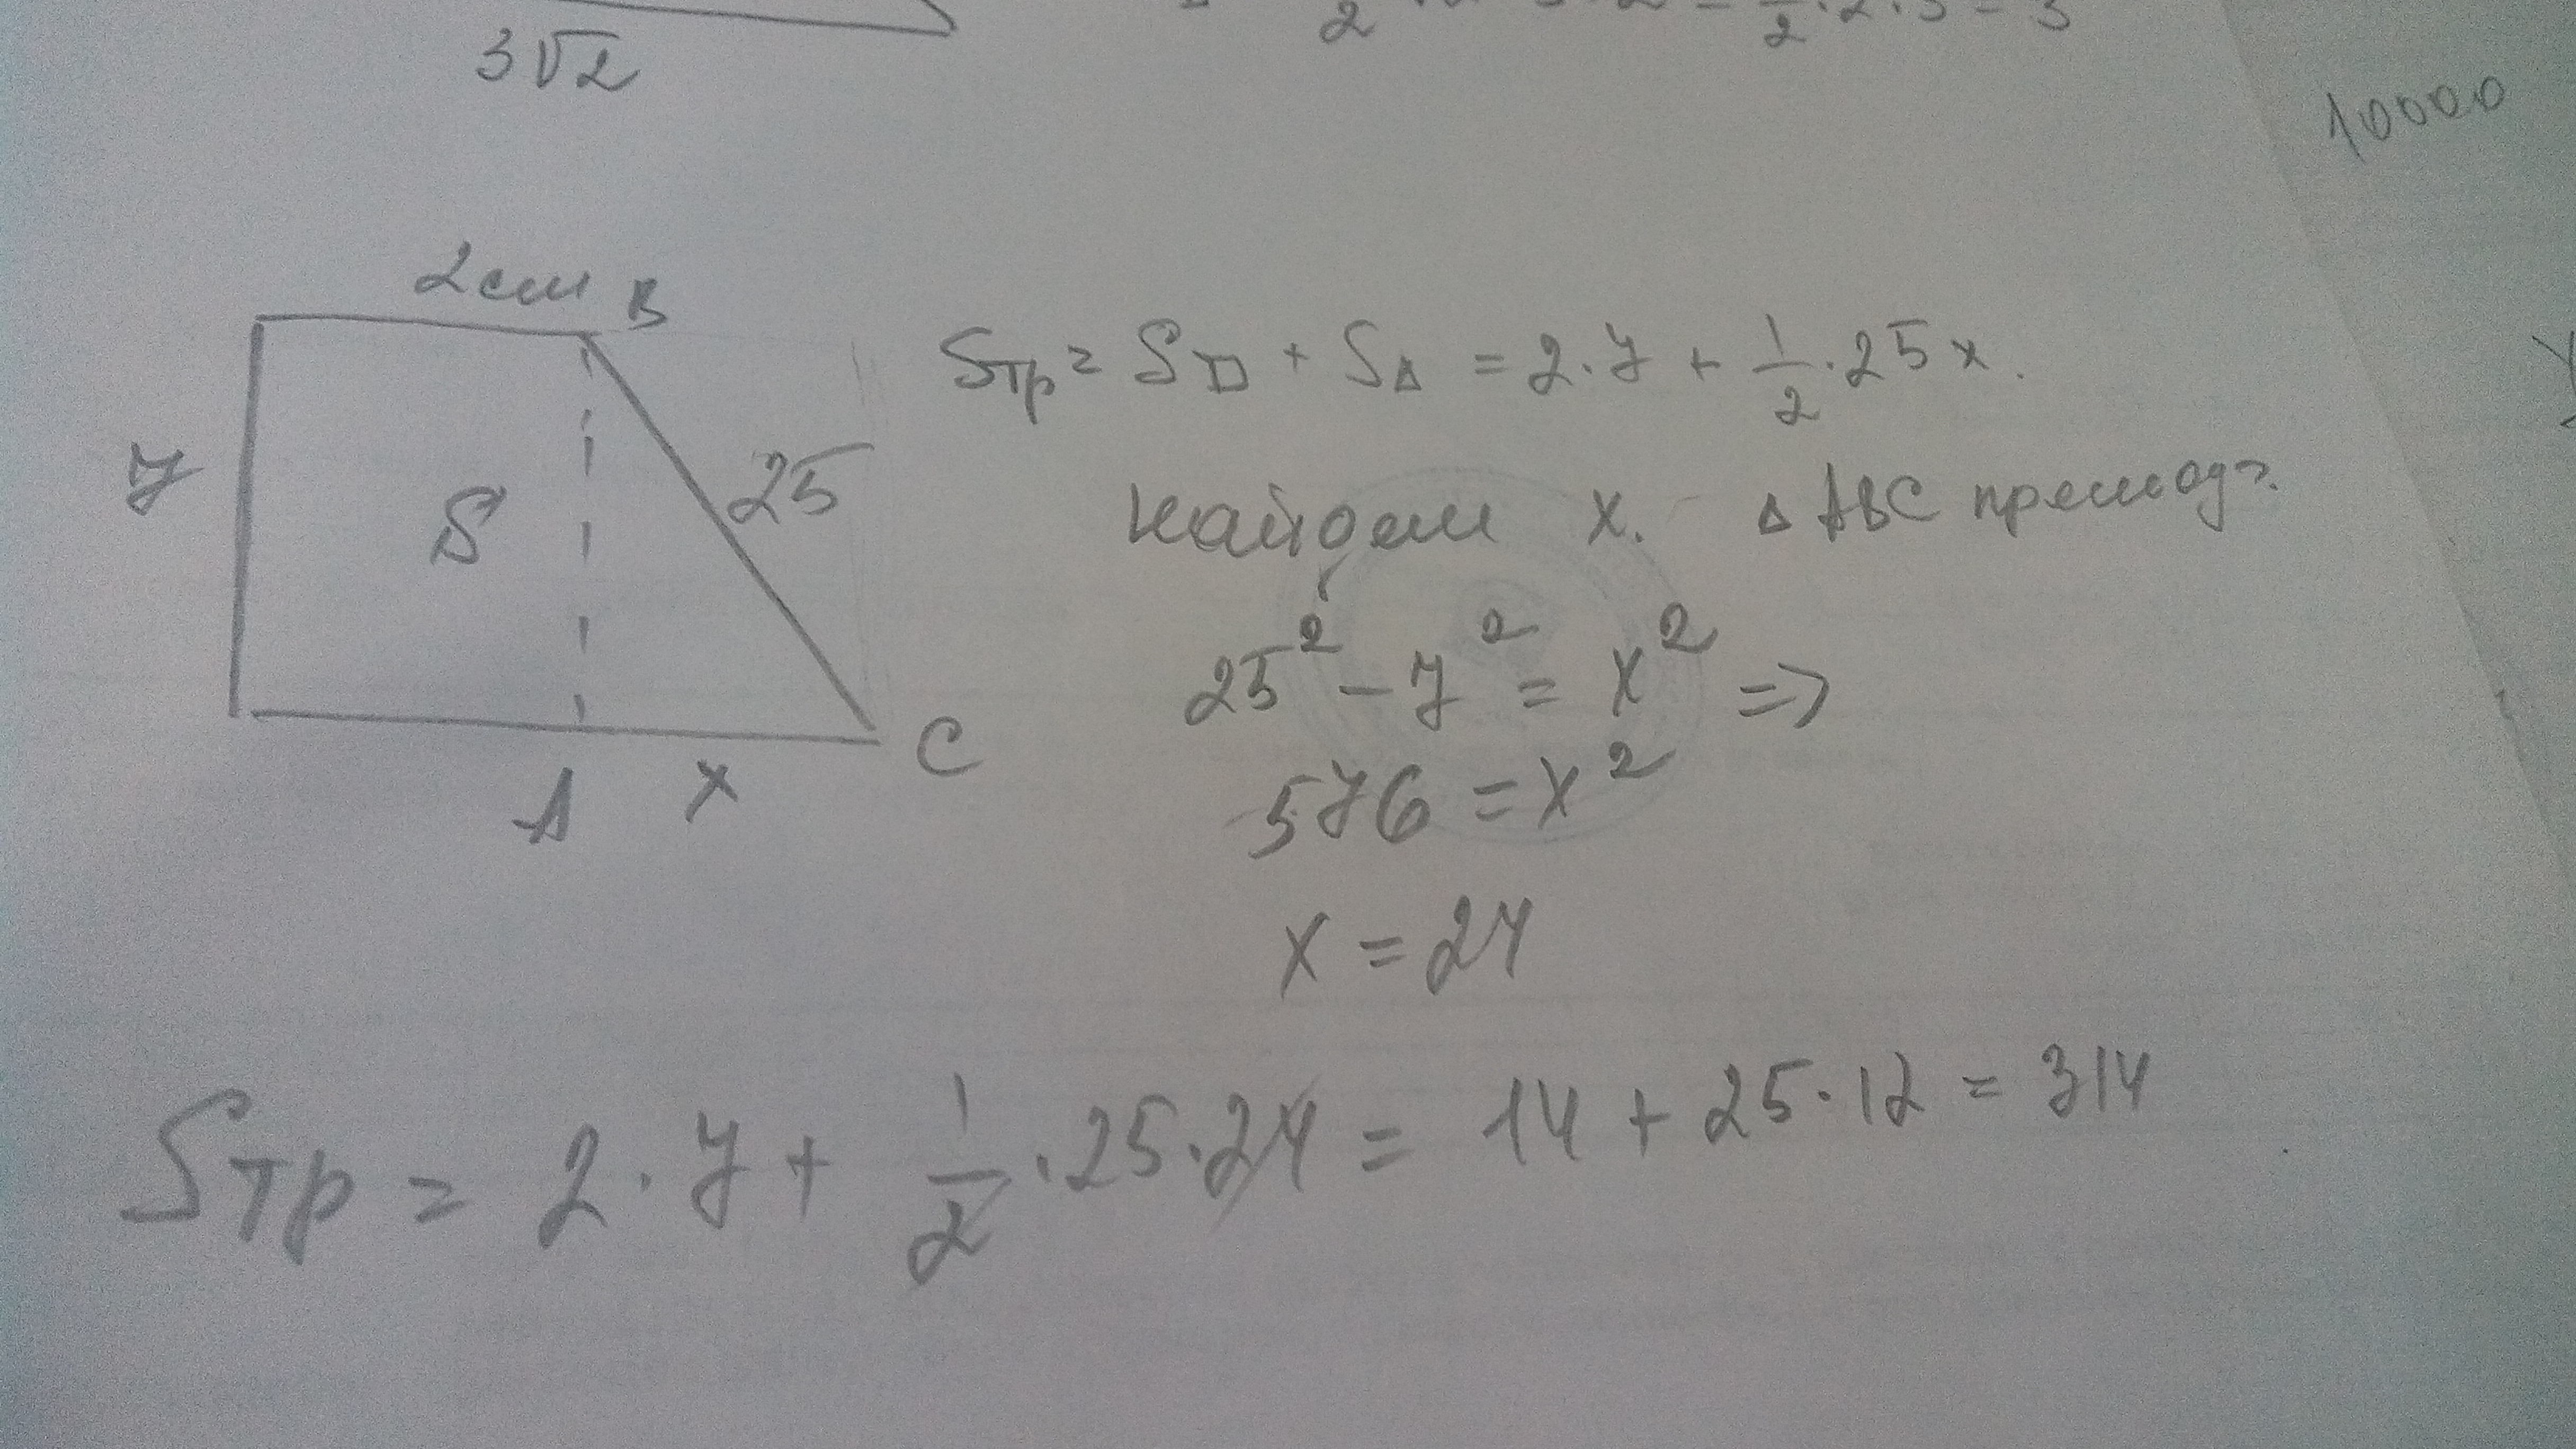 3√2
10000
2см B
7
S
25
A x C
Sтр = S□ + S△ = 2·7 + 1/2·25x.
найдем x. △ABC прямоуг.
25² - 7² = x² =>
576 = x²
x = 24
Sтр = 2·7 + 1/2·25·24 = 14 + 25·12 = 314